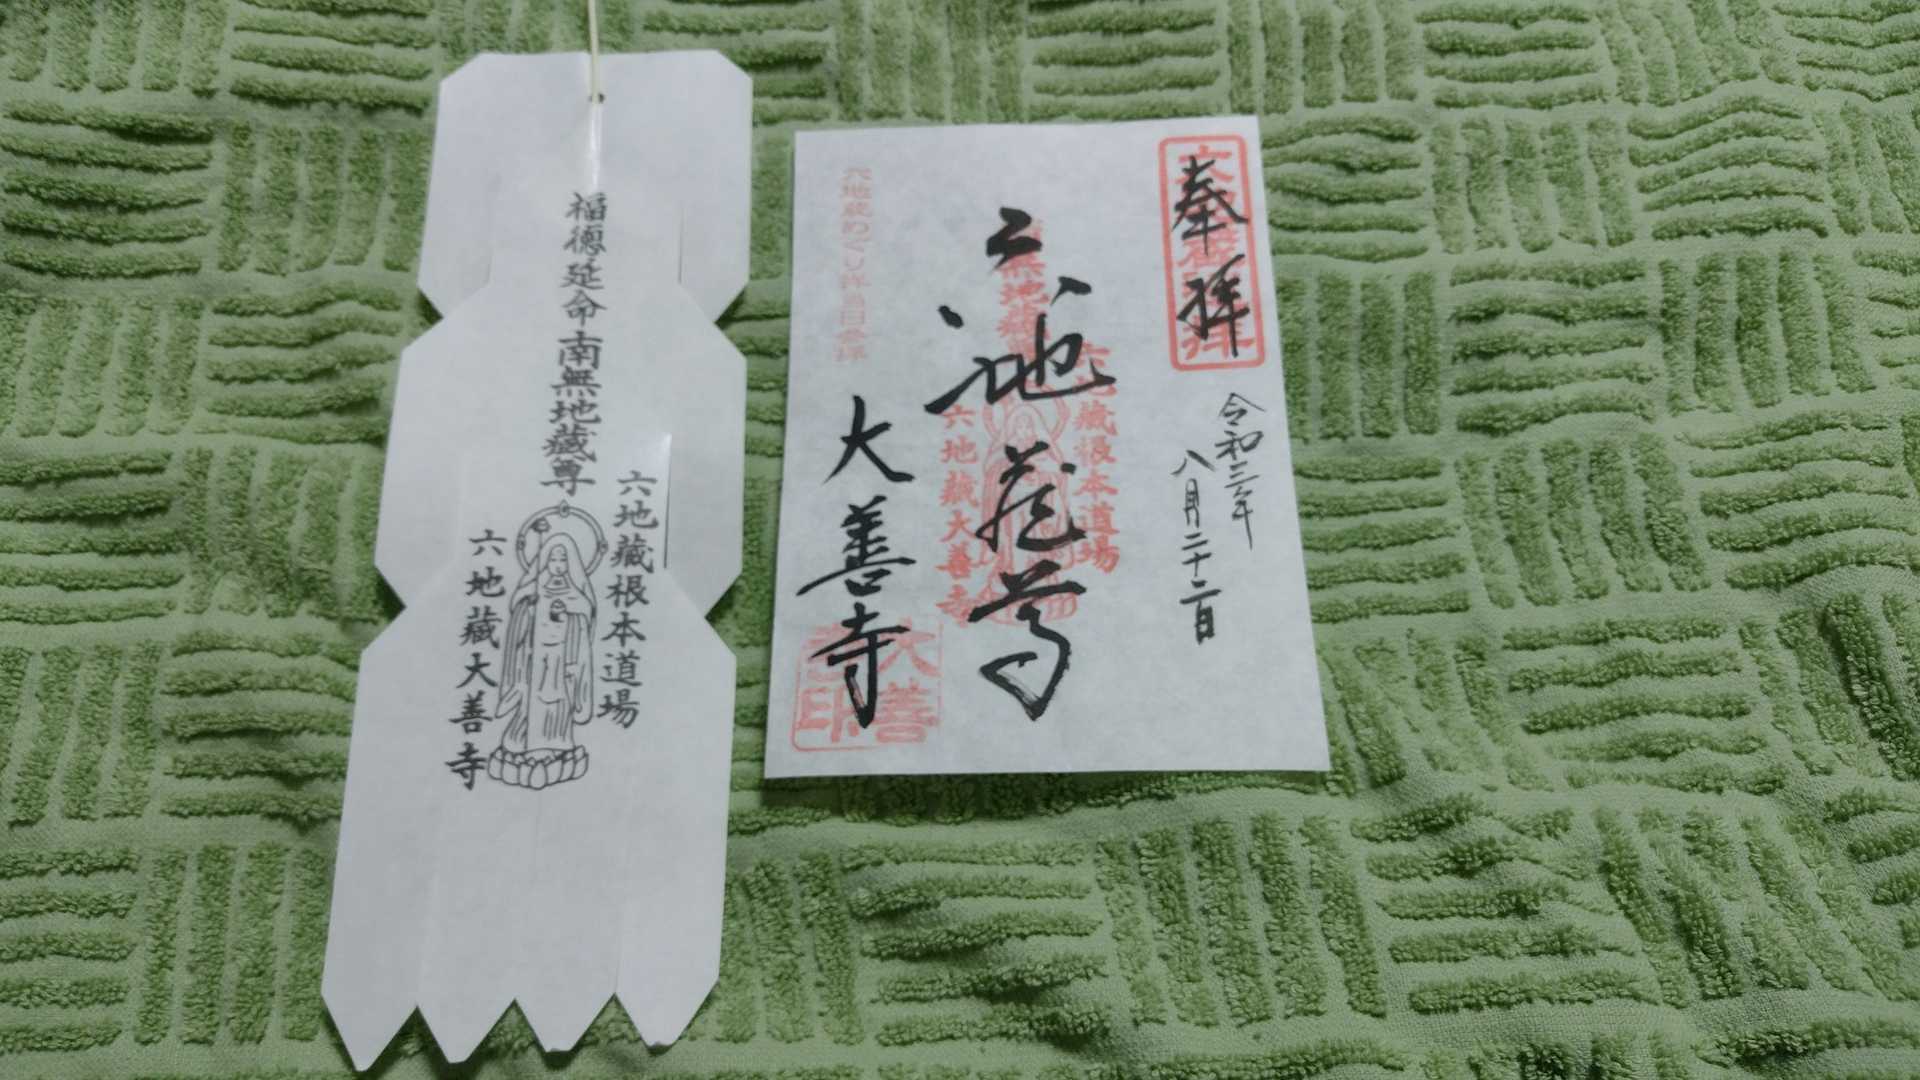 福徳延命南無地蔵尊
六地蔵根本道場
六地蔵大善寺
奉拝
令和三年
八月二十二日
六地蔵尊
六地蔵根本道場
六地蔵大善寺
大善寺
六地蔵めぐり
大善
寺印